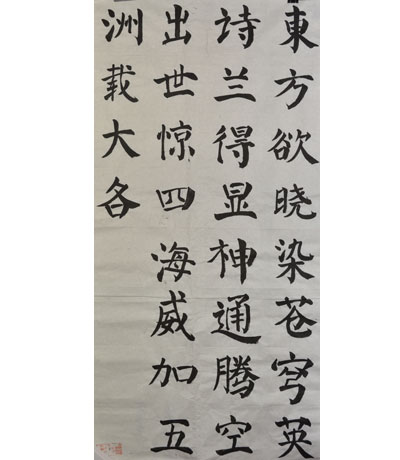 東方欲晓染苍穹英
诗兰得显神通腾空
出世惊四海威加五
洲载大各